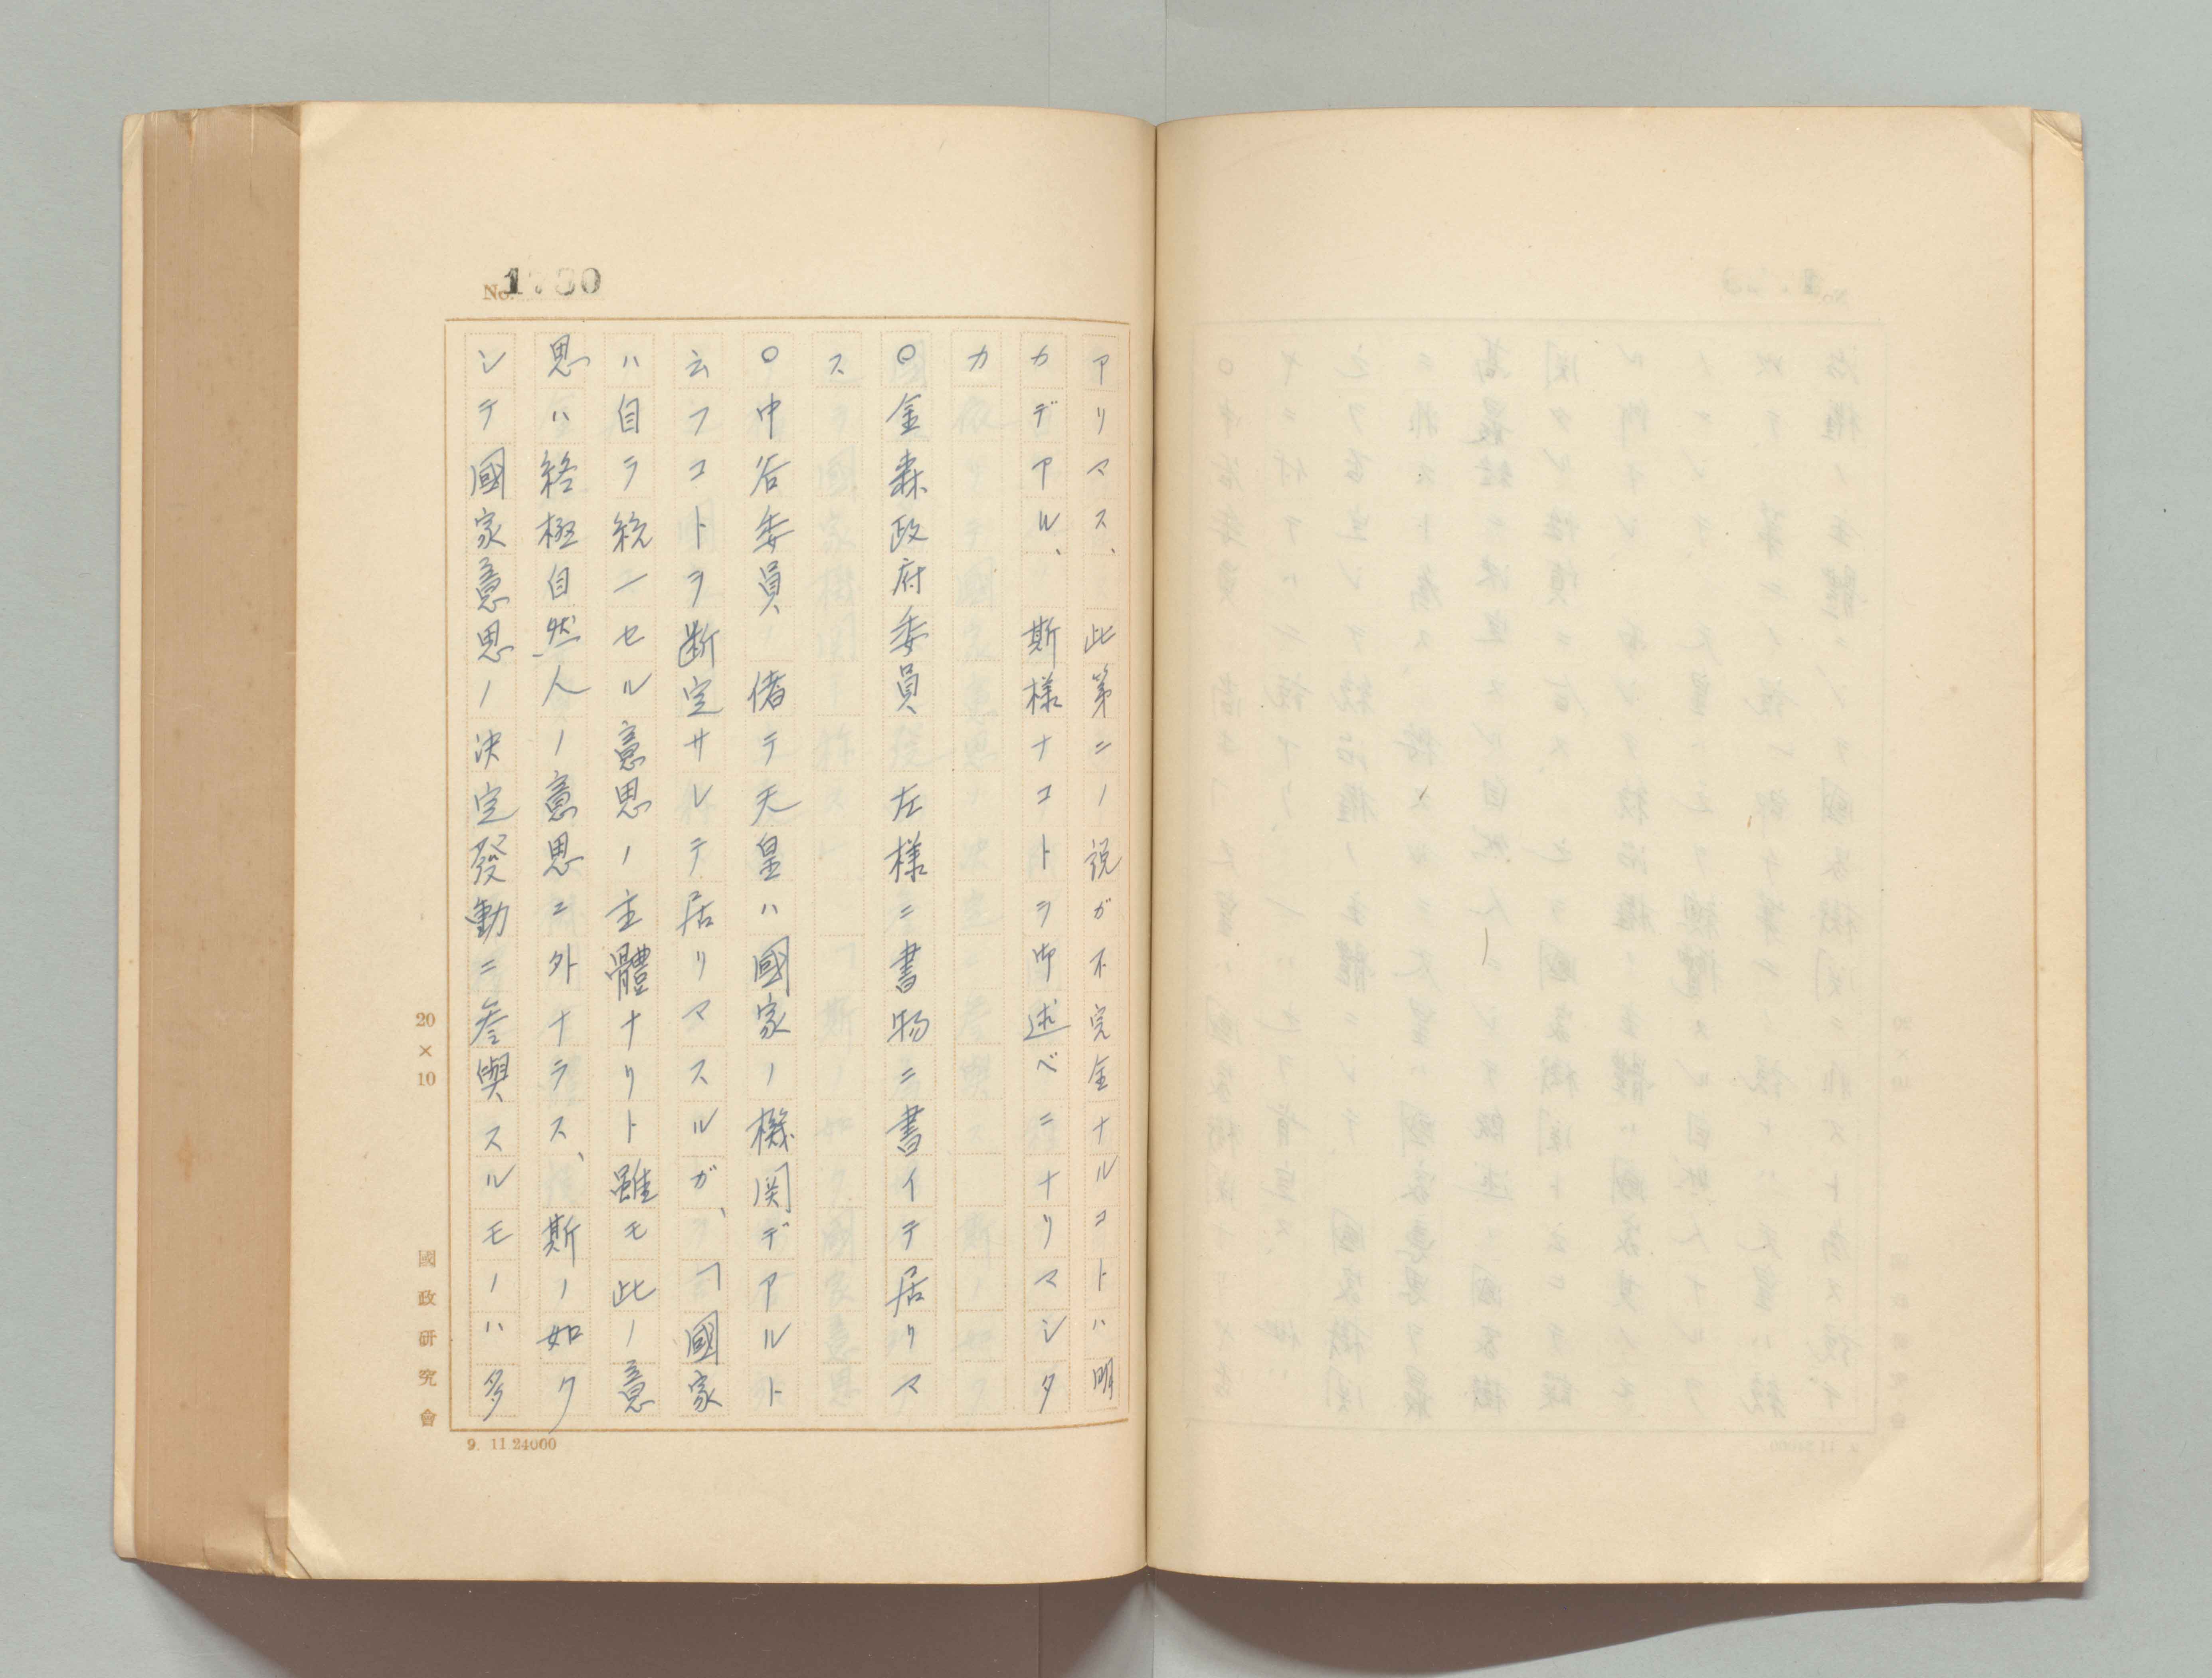 アリマス、此第二ノ説ガ不完全ナルコトハ明
カデアル、斯様ナコトヲ御述ベニナリマシタ
カ
○金森政府委員 左様ニ書物ニ書イテ居リマ
ス
○中谷委員 偖テ天皇ハ國家ノ機関デアルト
云フコトヲ断定サレテ居リマスルガ、「國家
ハ自ラ統一セル意思ノ主體ナリト雖モ此ノ意
思ハ終極自然人ノ意思ニ外ナラス、斯ノ如ク
シテ國家意思ノ決定發動ニ参與スルモノハ多
20×10
國政研究會
9. 11 24000